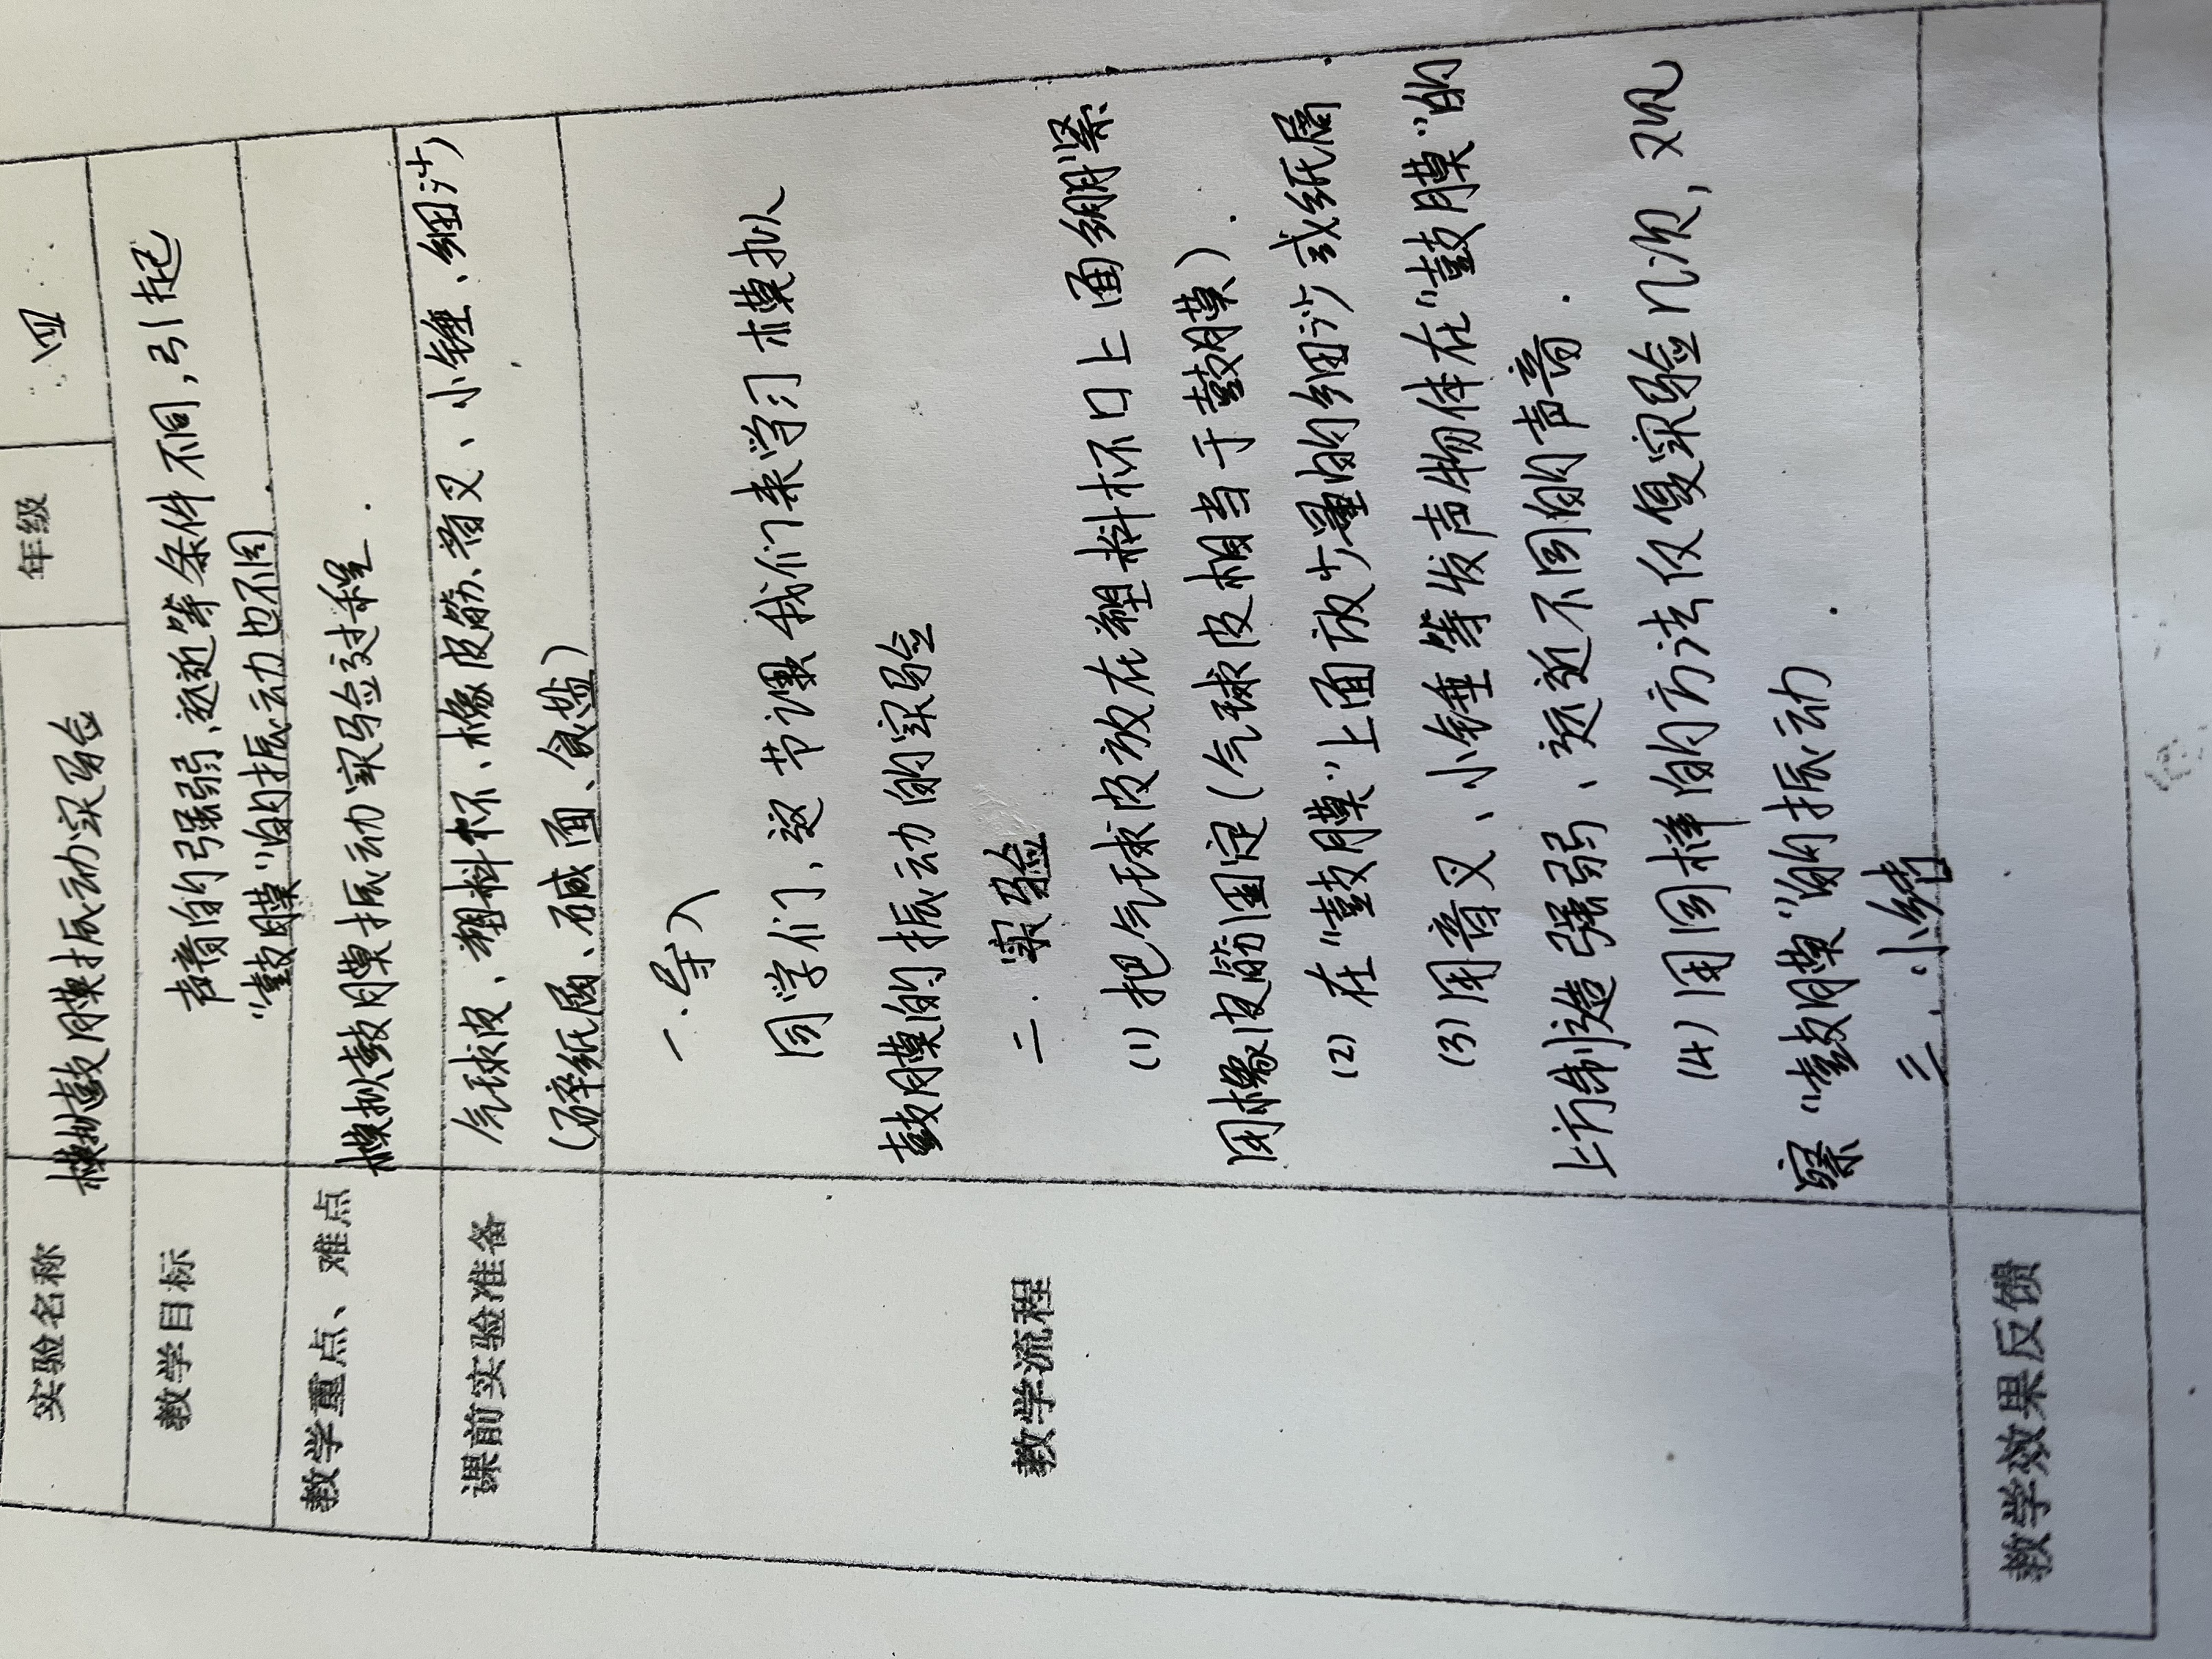 实验名称 模拟鼓膜振动实验 年级 四
教学目标 声音的强弱、远近等条件不同,引起
“鼓膜”的振动也不同.
教学重点、难点 模拟鼓膜振动实验过程.
课前实验准备 气球皮、塑料杯、橡皮筋、音叉、小锤、细沙
(碎纸屑、碱面、食盐)
教学流程
一.导入
同学们,这节课我们来学习模拟
鼓膜的振动的实验
二.实验
(1)把气球皮放在塑料杯口上面绷紧.
用橡皮筋固定(气球皮相当于鼓膜).
(2)在“鼓膜”上面放少量的细沙或纸屑.
(3)用音叉、小锤等发声物体在“鼓膜”的
上方制造强弱、远近不同的声音.
(4)用同样的方法反复实验几次,观
察“鼓膜”的振动.
三.小结
教学效果反馈